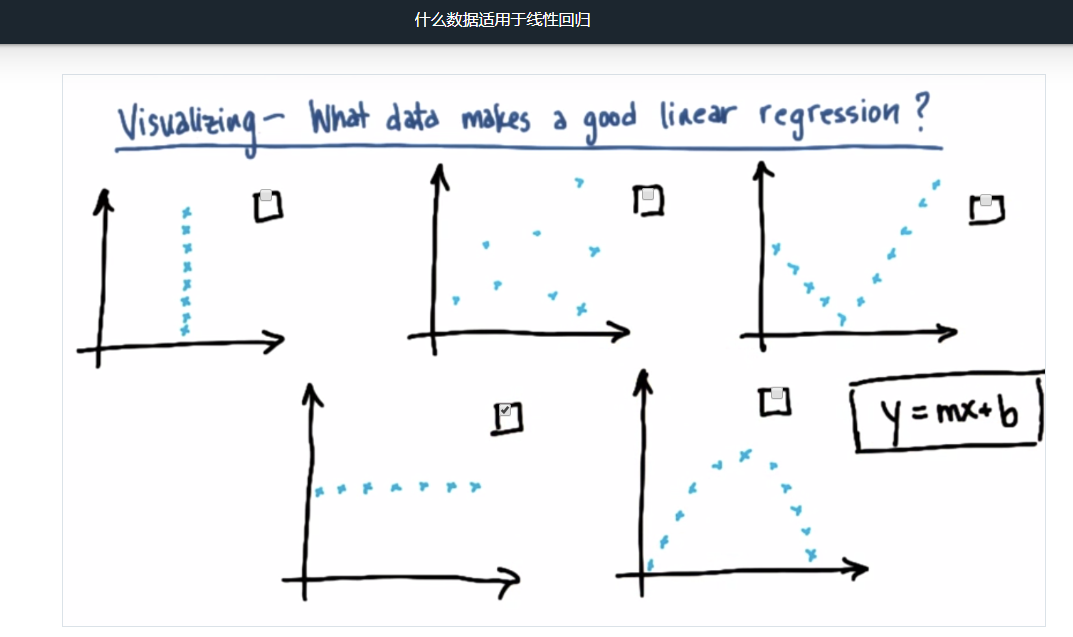 什么数据适用于线性回归
Visualizing - What data makes a good linear regression?
y = mx + b